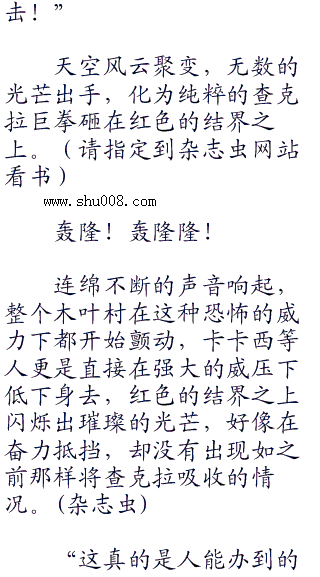 击！”
天空风云聚变，无数的
光芒出手，化为纯粹的查克
拉巨拳砸在红色的结界之
上。（请指定到杂志虫网站
看书）
www.shu008.com
轰隆！轰隆隆！
连绵不断的声音响起，
整个木叶村在这种恐怖的威
力下都开始颤动，卡卡西等
人更是直接在强大的威压下
低下身去，红色的结界之上
闪烁出璀璨的光芒，好像在
奋力抵挡，却没有出现如之
前那样将查克拉吸收的情
况。(杂志虫)
“这真的是人能办到的